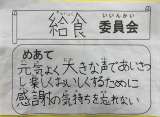 給食 いいんかい
委員会
めあて
元気よく大きな声であいさつ
し楽しくおいしくするために
感謝の気持ちを忘れない